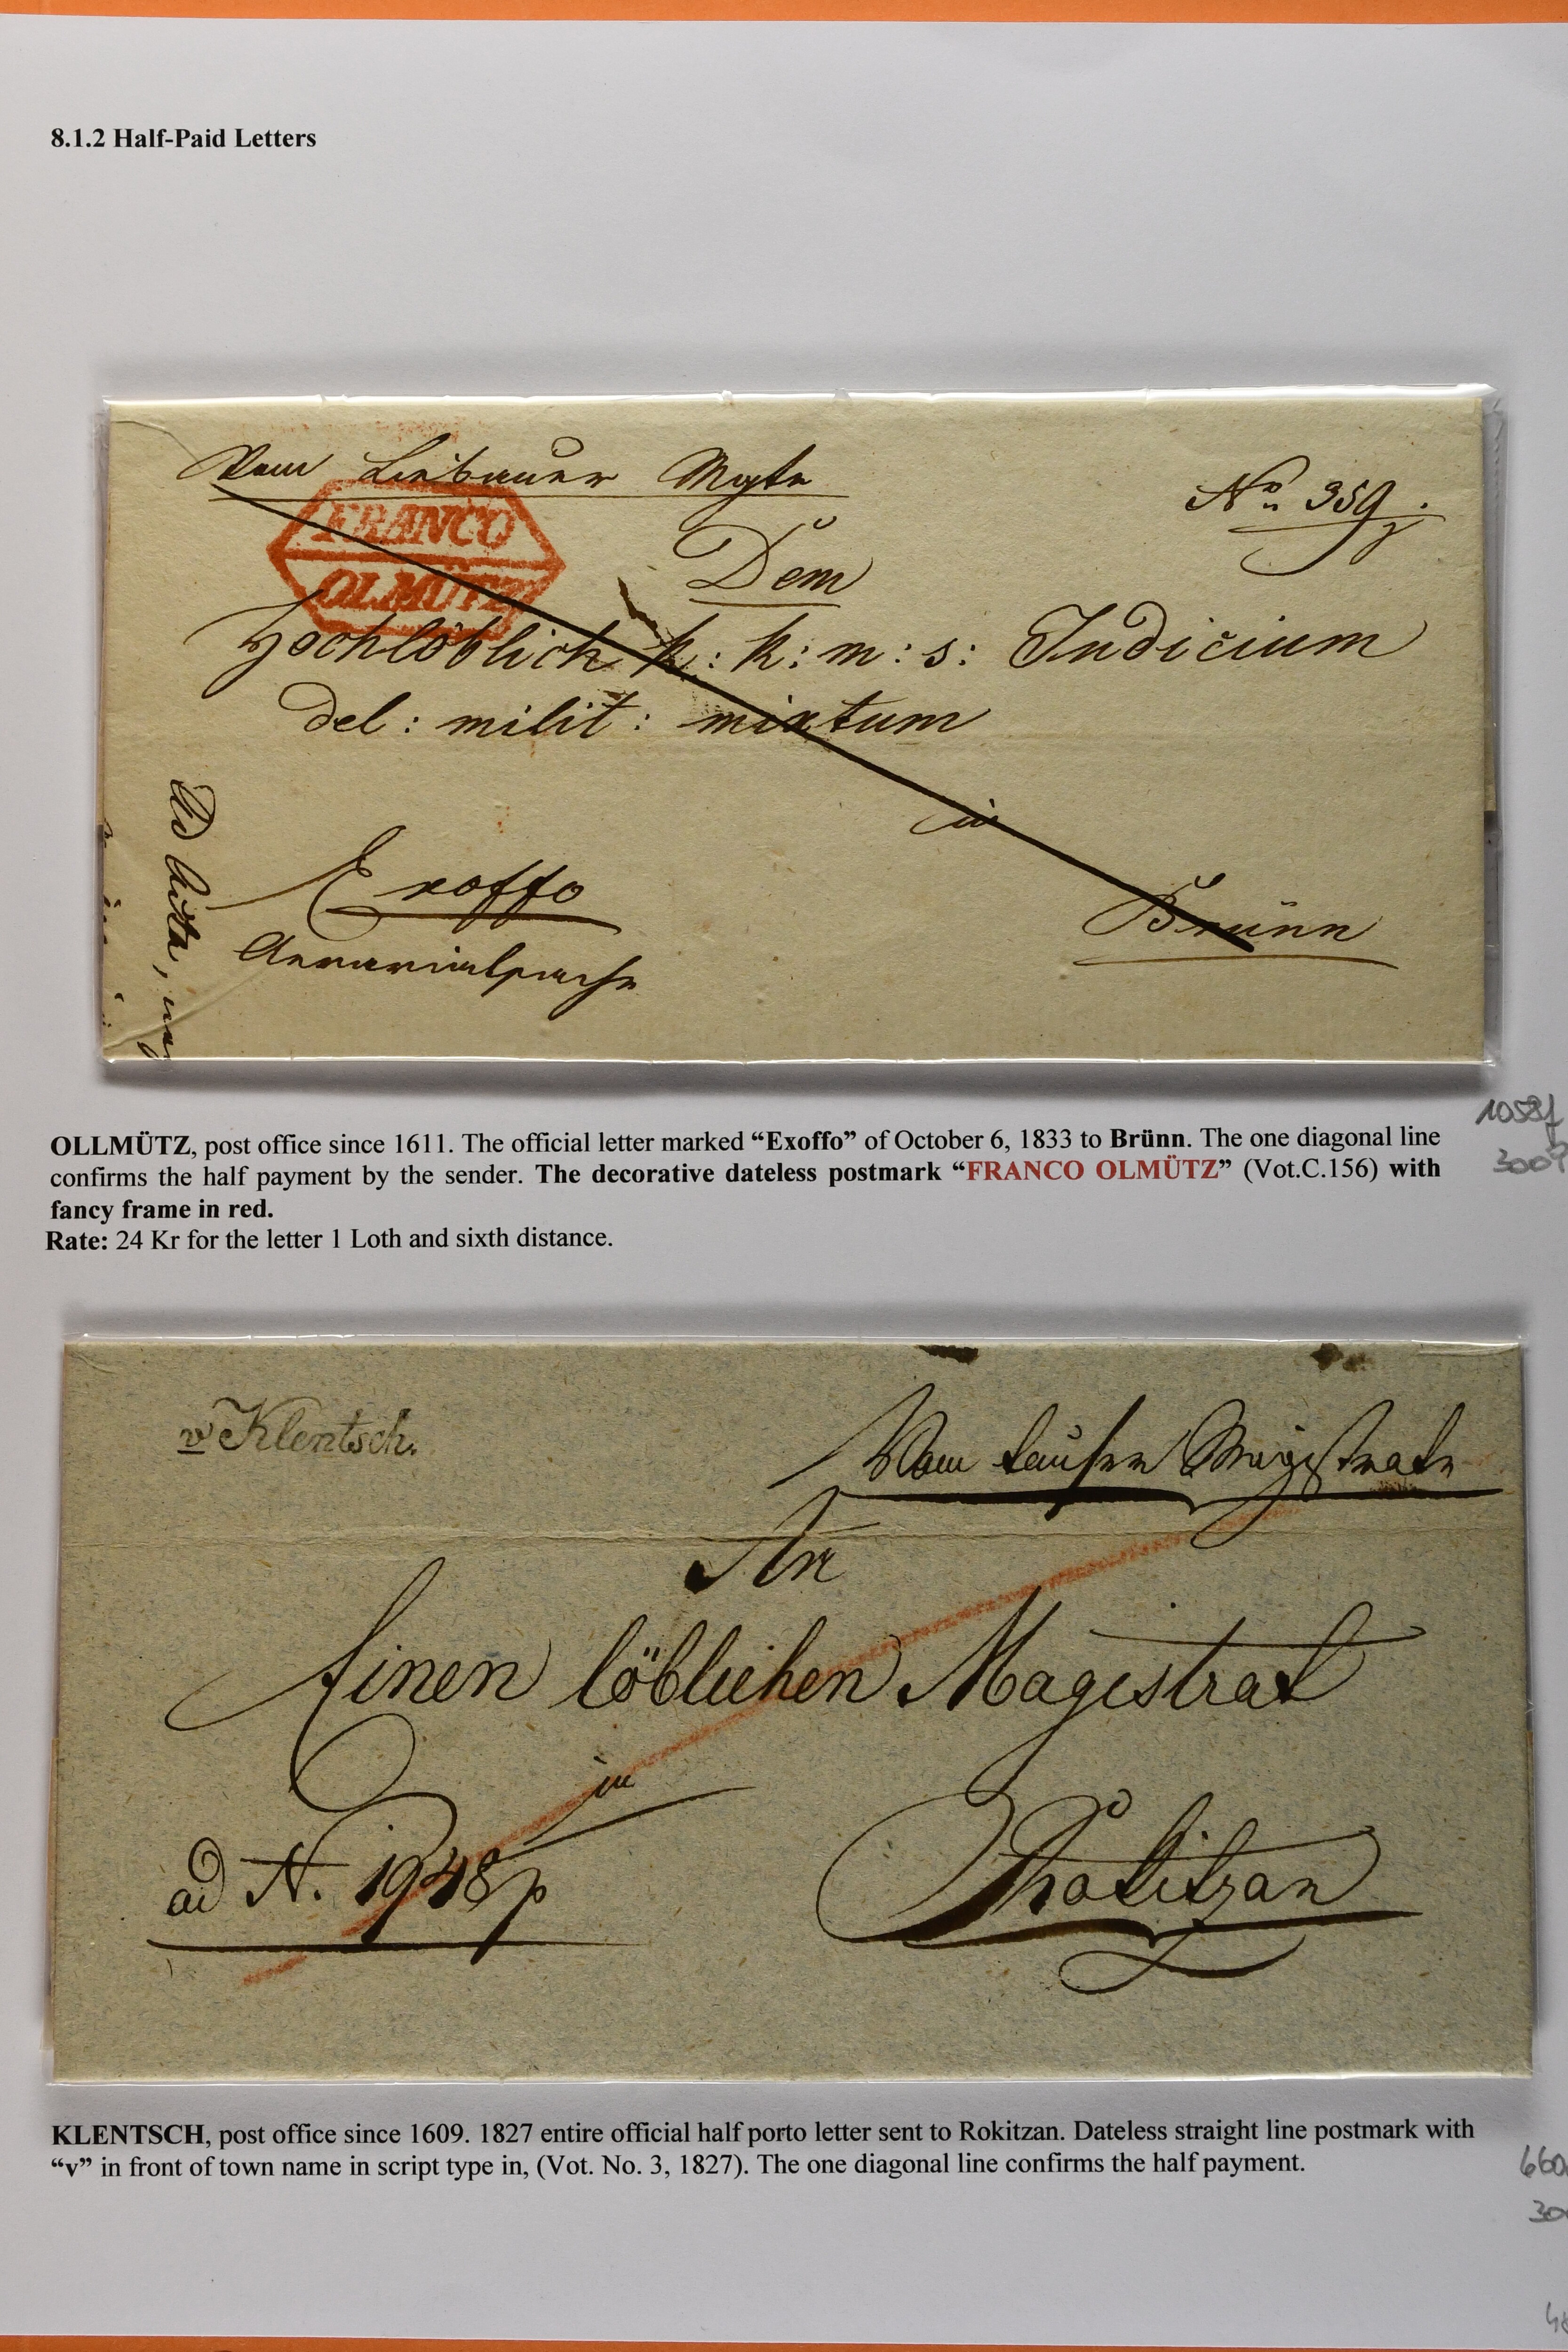 8.1.2 Half-Paid Letters
Vom Liebauer Mgte
No. 359
FRANCO
OLMÜTZ
Dem
Hochlöblich k: k: m: s: Judicium
del: milit: mixtum
in
Exoffo
Brünn
Aerarialsache
OLLMÜTZ, post office since 1611. The official letter marked “Exoffo” of October 6, 1833 to Brünn. The one diagonal line
confirms the half payment by the sender. The decorative dateless postmark “FRANCO OLMÜTZ” (Vot.C.156) with
fancy frame in red.
Rate: 24 Kr for the letter 1 Loth and sixth distance.
v Klentsch.
Vom Magistrate
An
Einen löblichen Magistrat
in
ad N. 1948
Rokitzan
KLENTSCH, post office since 1609. 1827 entire official half porto letter sent to Rokitzan. Dateless straight line postmark with
“v” in front of town name in script type in, (Vot. No. 3, 1827). The one diagonal line confirms the half payment.